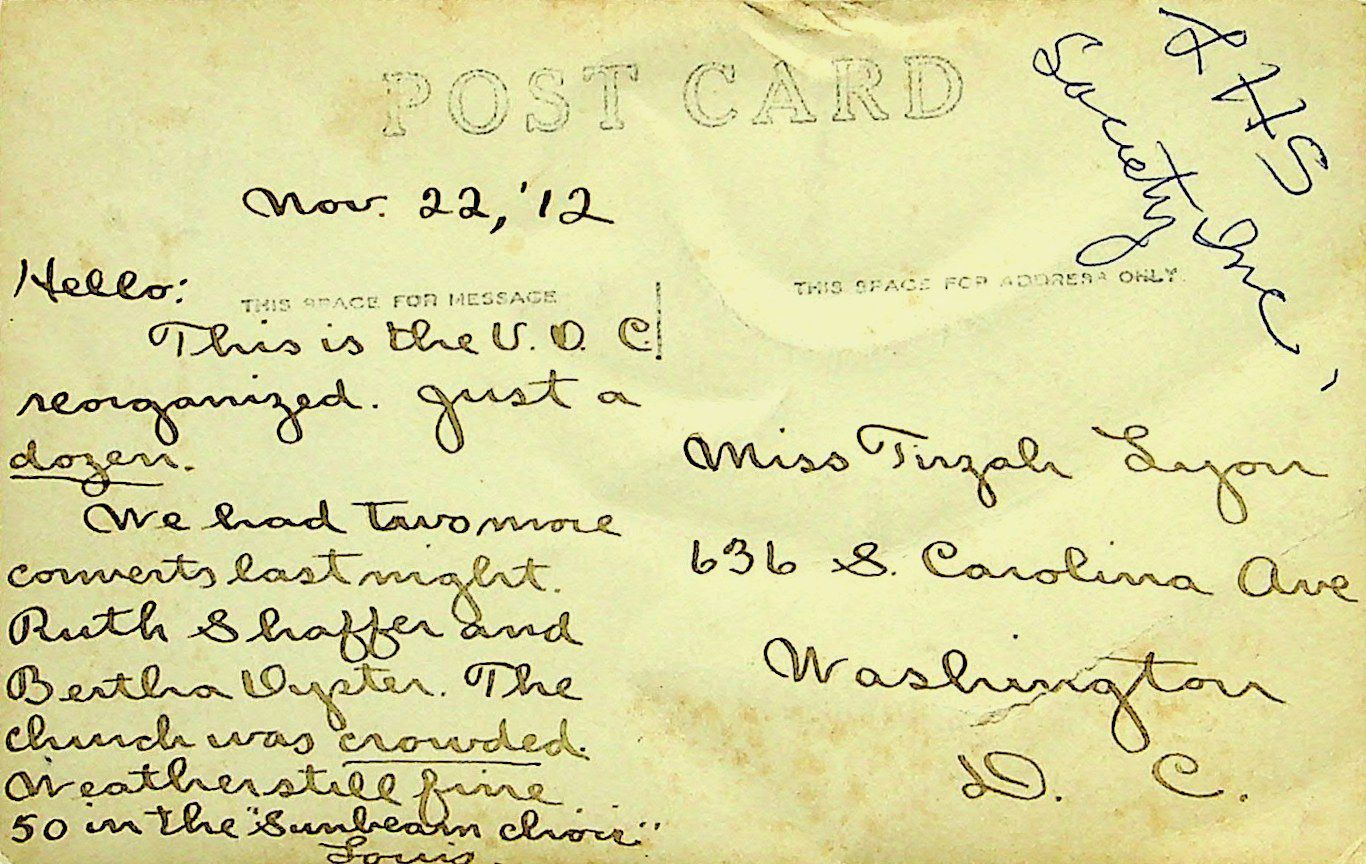 POST CARD
HS
Society Inc
Nov. 22, '12
Hello:
THIS SPACE FOR MESSAGE
THIS SPACE FOR ADDRESS ONLY.
This is the U. O. C.
reorganized. Just a
dozen.
We had two more
converts last night.
Ruth Shaffer and
Bertha Oyster. The
church was crowded.
Weather still fine.
50 in the "Sunbeam choir"
Louis.
Miss Tirzah Lyon
636 S. Carolina Ave
Washington
D. C.